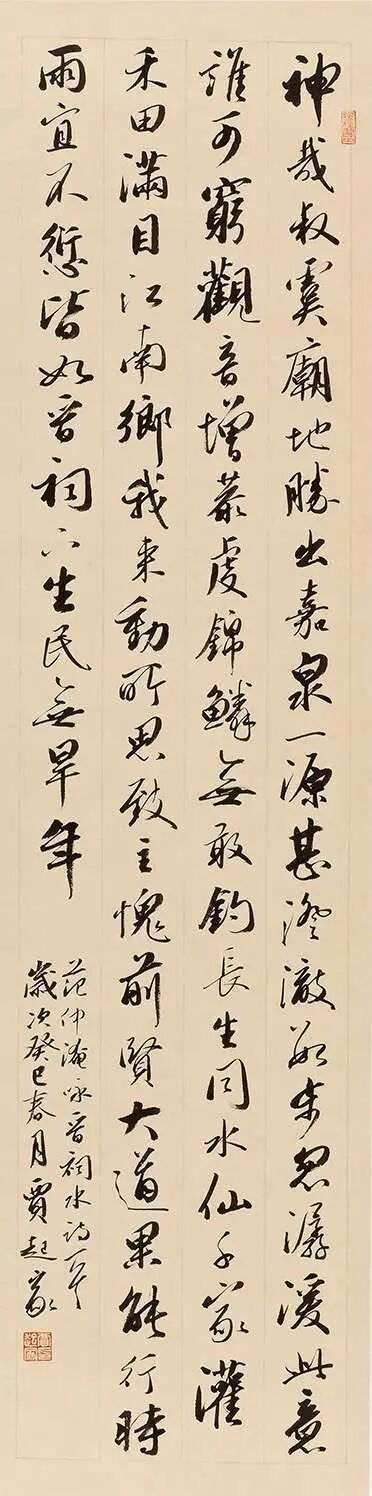 神哉叔虞廟地勝出嘉泉一源甚澄澈數步忽潺湲此意
誰可窮觀者增恭虔錦鱗無敢釣長生同水仙千家灌
禾田滿目江南鄉我來動所思致主愧前賢大道果能行時
雨宜不愆皆如晉祠下生民無旱年
范仲淹詠晉祠水詩一首
歲次癸巳春月賈起家